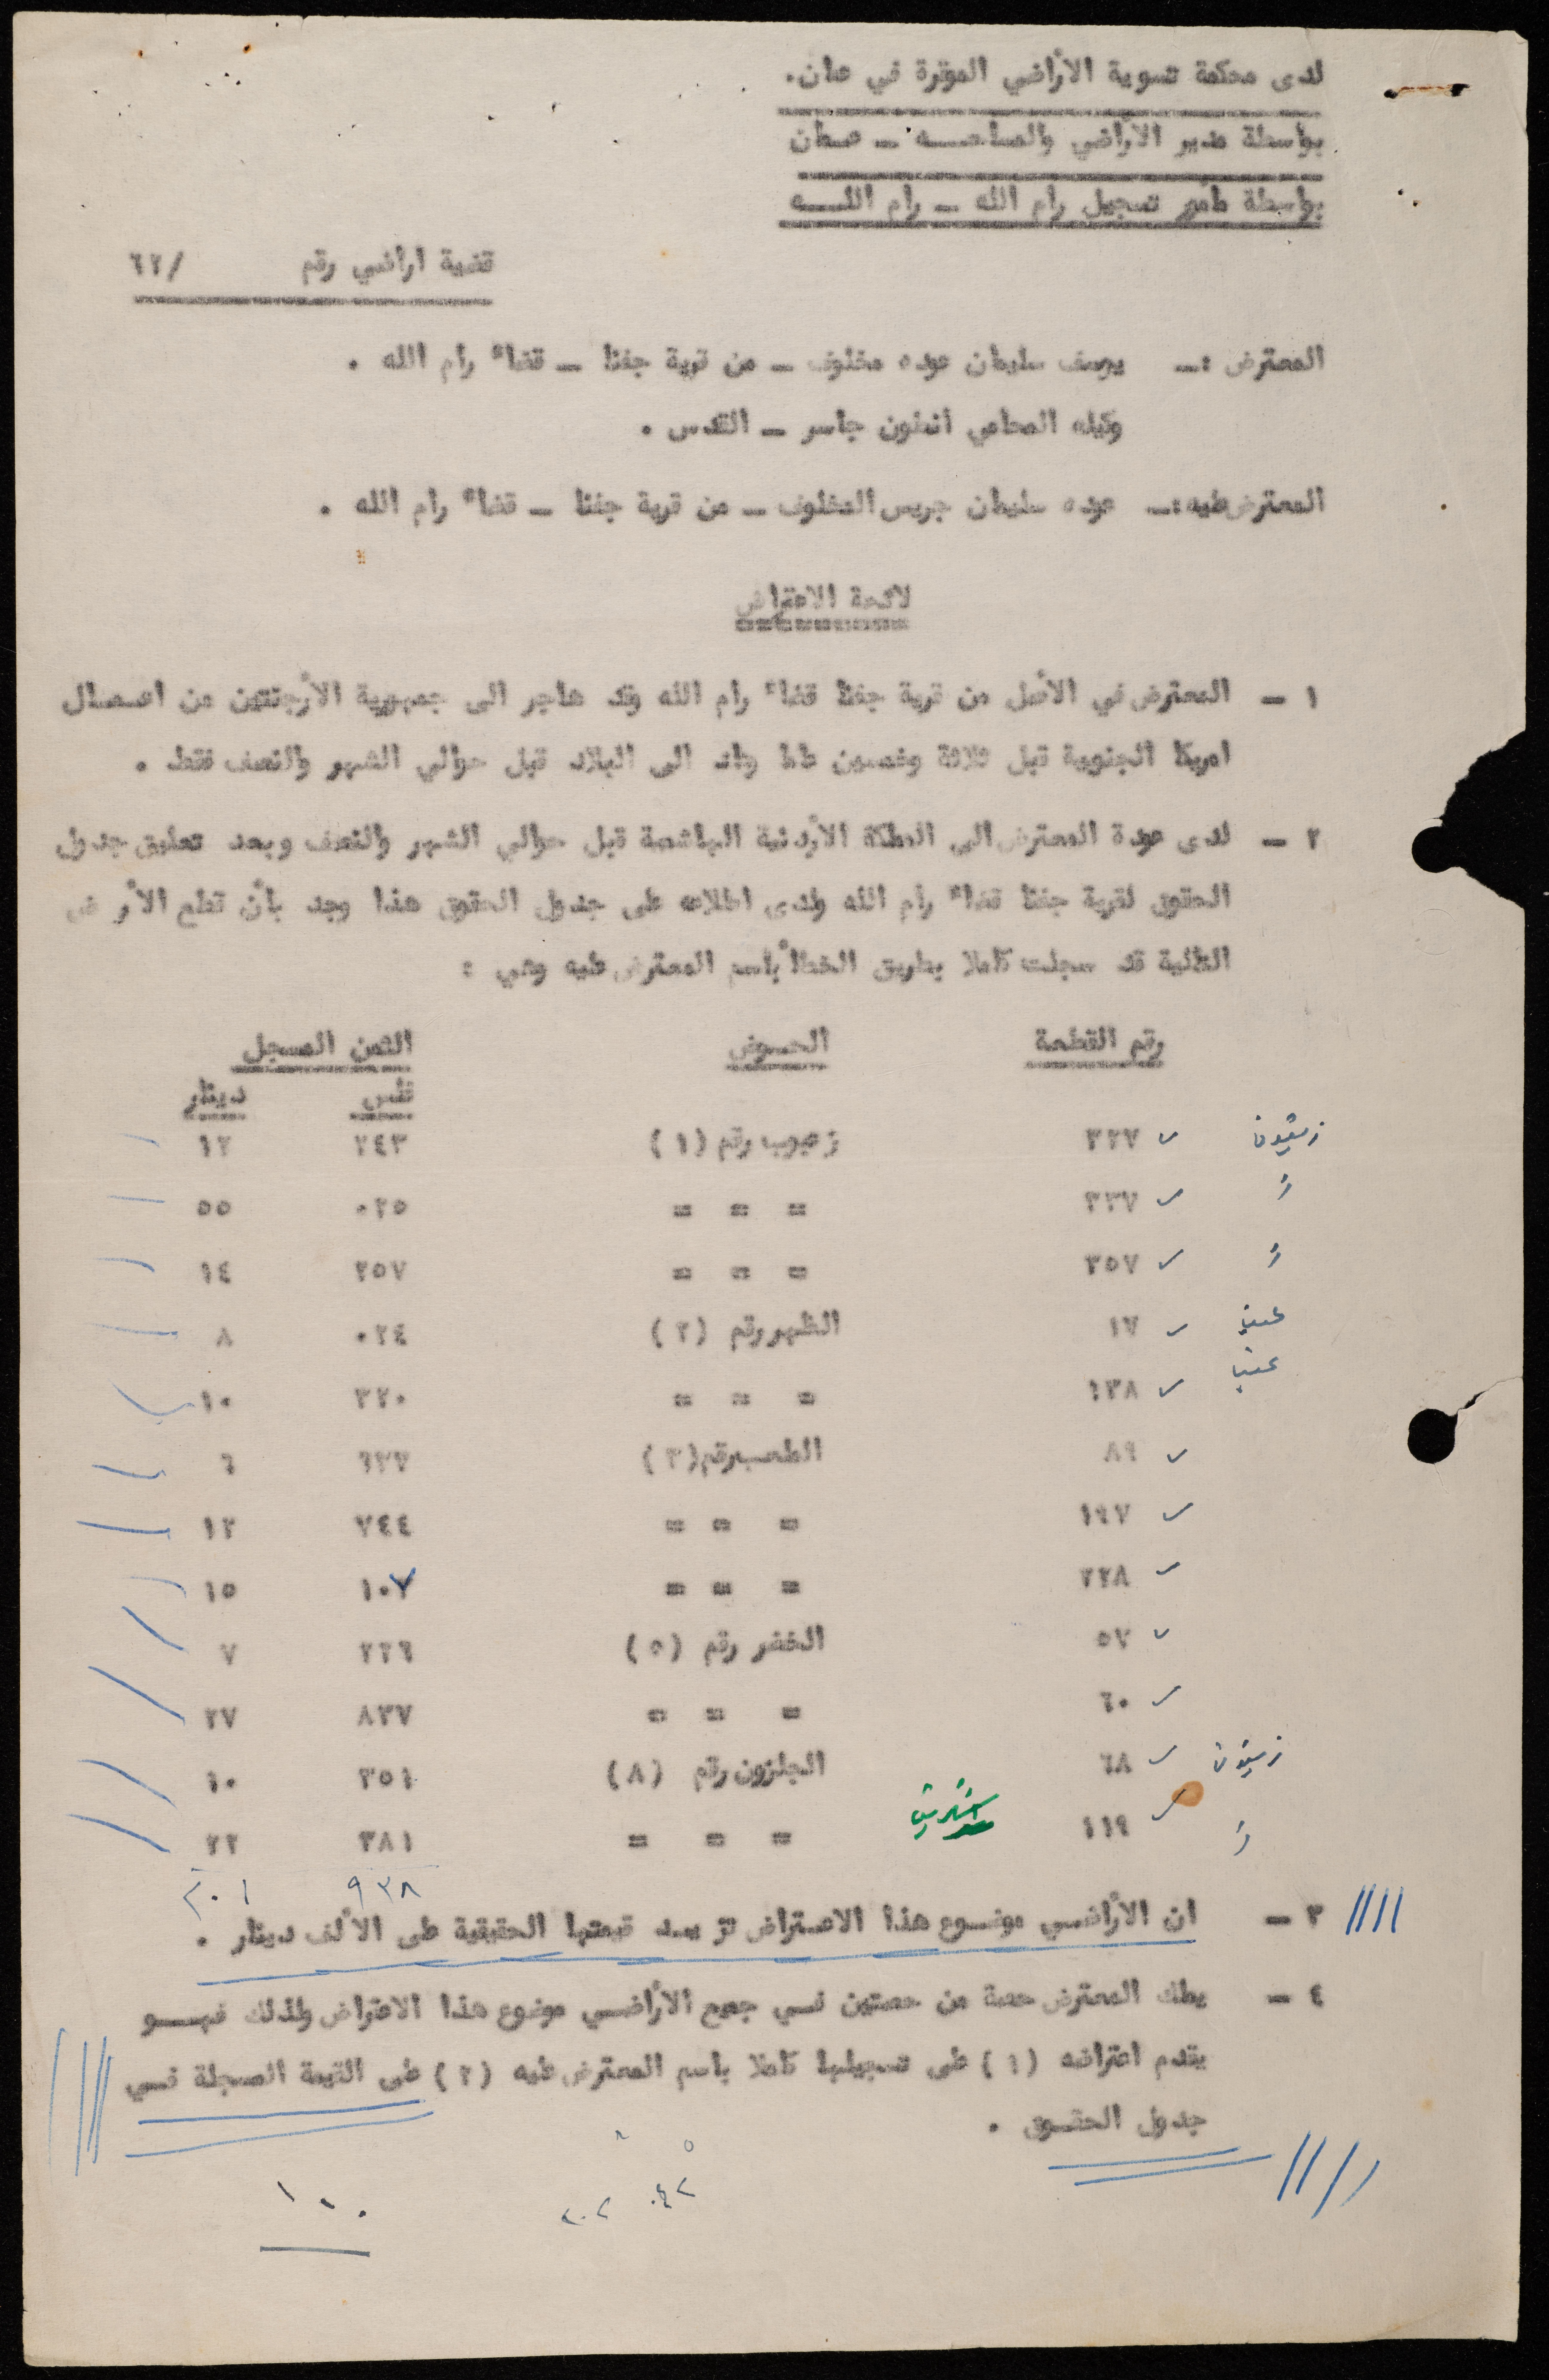 لدى محكمة تسوية الأراضي الموقرة في عمان.
بواسطة مدير الأراضي والمساحـــه ـ عمان
بواسطة مأمور تسجيل رام الله ـ رام اللــــه
قضية اراضي رقم /٦٢
المعترض :ـ يوسف سليمان عوده مخلوف ـ من قرية جفنا ـ قضاء رام الله .
وكيله المحامي انطون جاسر ـ القدس .
المعترض عليه :ـ عوده سليمان جريس المخلوف ـ من قرية جفنا ـ قضاء رام الله .
لائحة الاعتراض
١ ـ المعترض في الأصل من قرية جفنا قضاء رام الله وقد هاجر الى جمهورية الأرجنتين من اعمال
امريكا الجنوبية قبل ثلاثة وخمسين عاما وعاد الى البلاد قبل حوالي الشهر والنصف فقط .
٢ ـ لدى عودة المعترض الى المملكة الأردنية الهاشمية قبل حوالي الشهر والنصف وبعد تعليق جدول
الحقوق لقرية جفنا قضاء رام الله ولدى اطلاعه على جدول الحقوق هذا وجد بأن قطع الأرض
التالية قد سجلت كاملا بطريق الخطأ بأسم المعترض عليه وهي :
رقم القطعة الحــوض الثمن المسجل
فلس دينار
زيتون ٣٢٧ زعبوب رقم (١) ٢٤٣ ١٢
" ٣٣٧ = = = ٠٢٥ ٥٥
" ٣٥٧ = = = ٢٥٧ ١٤
عنب ١٧ الظهر رقم (٢) ٠٢٤ ٨
عنب ١٣٨ = = = ٣٢٠ ١٠
٨٩ رقم (٣) ٦٢٧ ٦
١٩٧ = = = ٧٤٤ ١٢
٢٢٨ = = = ١٠٧ ١٥
٥٧ الخضر رقم (٥) ٢٢٦ ٧
٦٠ = = = ٨٣٧ ٢٧
زيتون ٦٨ الجلزون رقم (٨) ٣٥١ ١٠
" ١١٩ = = = ٣٨١ ٢٢
٩٣٨ ٢٠١
٣ ـ ان الأراضــي موضــوع هذا الاعتراض تزيــد قيمتها الحقيقية على الألف دينار .
٤ ـ يملك المعترض حصة من حصتين فــي جميع الأراضــي موضوع هذا الاعتراض ولذلك فهــــو
يقدم اعتراضه (١) على تسجيلها كاملا باسم المعترض عليه (٢) على القيمة المسجلة فــي
جدول الحقــوق .
١٠٠